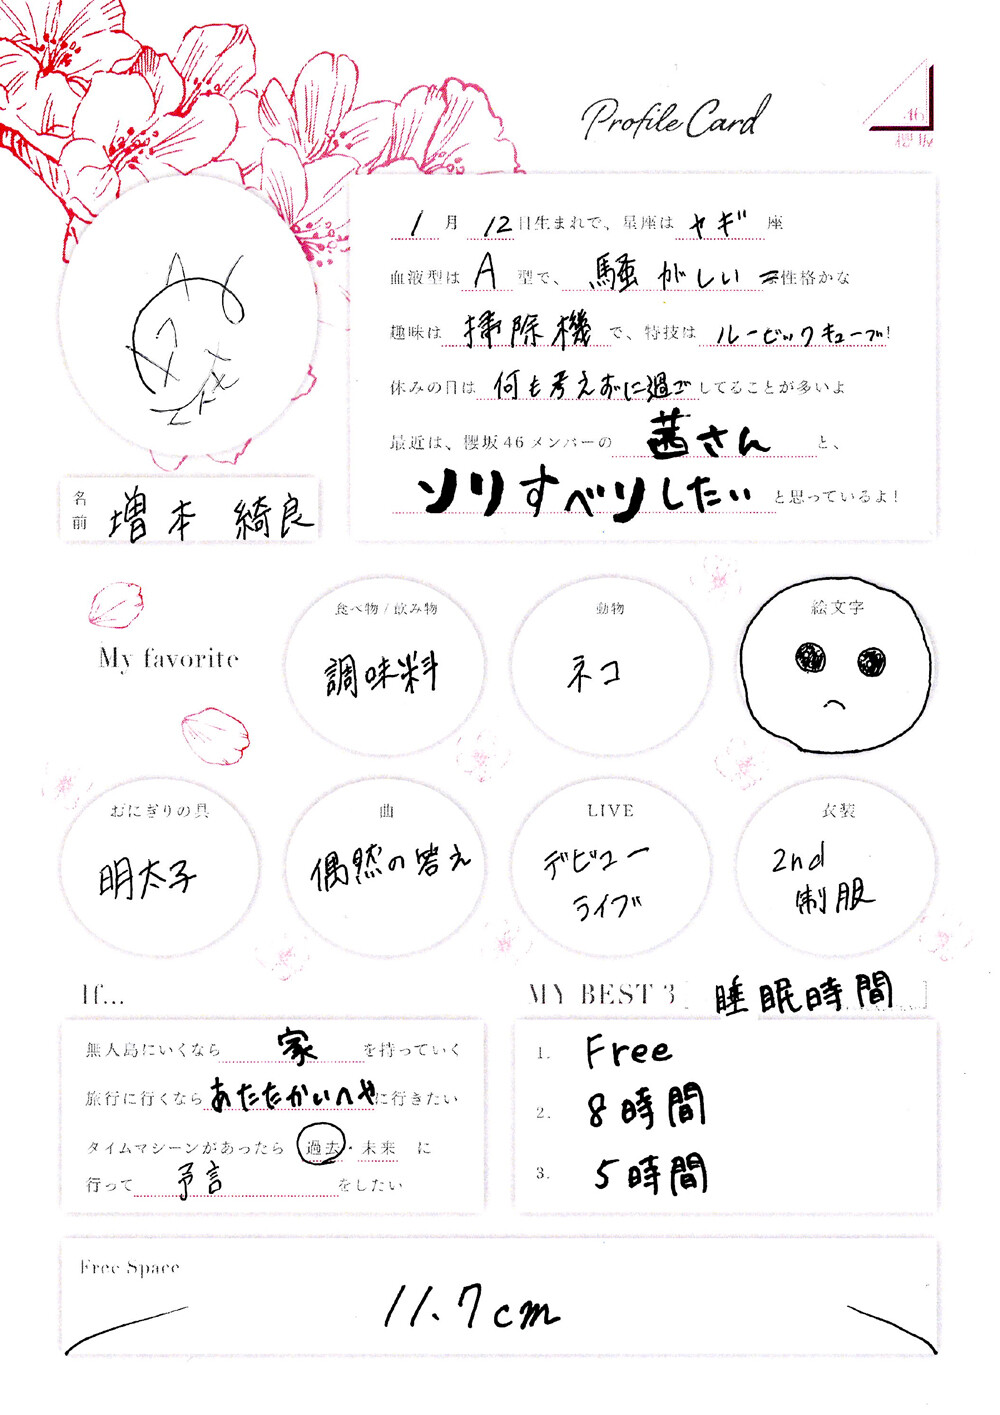 Profile Card
46
櫻坂
1月12日生まれで、星座はヤギ座
血液型はA型で、騒がしい性格かな
趣味は掃除機で、特技はルービックキューブ!
休みの日は何も考えずに過ごしてることが多いよ
最近は、櫻坂46メンバーの茜さんと、
ソリすべりしたいと思っているよ!
名前 増本 綺良
My favorite
食べ物/飲み物
調味料
動物
ネコ
絵文字
おにぎりの具
明太子
曲
偶然の答え
LIVE
デビュー
ライブ
衣装
2nd
制服
If...
無人島にいくなら家を持っていく
旅行に行くならあたたかいへやに行きたい
タイムマシーンがあったら 過去・未来 に
行って予言をしたい
MY BEST 3 [睡眠時間]
1. Free
2. 8時間
3. 5時間
Free Space
11.7cm